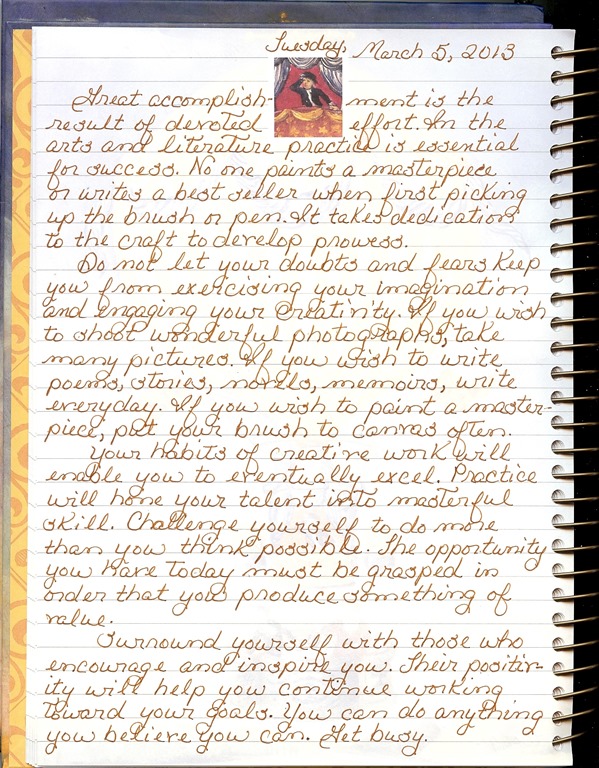 Tuesday, March 5, 2013
Great accomplish- ment is the
result of devoted effort. In the
arts and literature practice is essential
for success. No one paints a masterpiece
or writes a best seller when first picking
up the brush or pen. It takes dedication
to the craft to develop prowess.
Do not let your doubts and fears keep
you from exercising your imagination
and engaging your creativity. If you wish
to shoot wonderful photographs, take
many pictures. If you wish to write
poems, stories, novels, memoirs, write
everyday. If you wish to paint a master-
piece, put your brush to canvas often.
Your habits of creative work will
enable you to eventually excel. Practice
will hone your talent into masterful
skill. Challenge yourself to do more
than you think possible. The opportunity
you have today must be grasped in
order that you produce something of
value.
Surround yourself with those who
encourage and inspire you. Their positiv-
ity will help you continue working
toward your goals. You can do anything
you believe you can. Get busy.